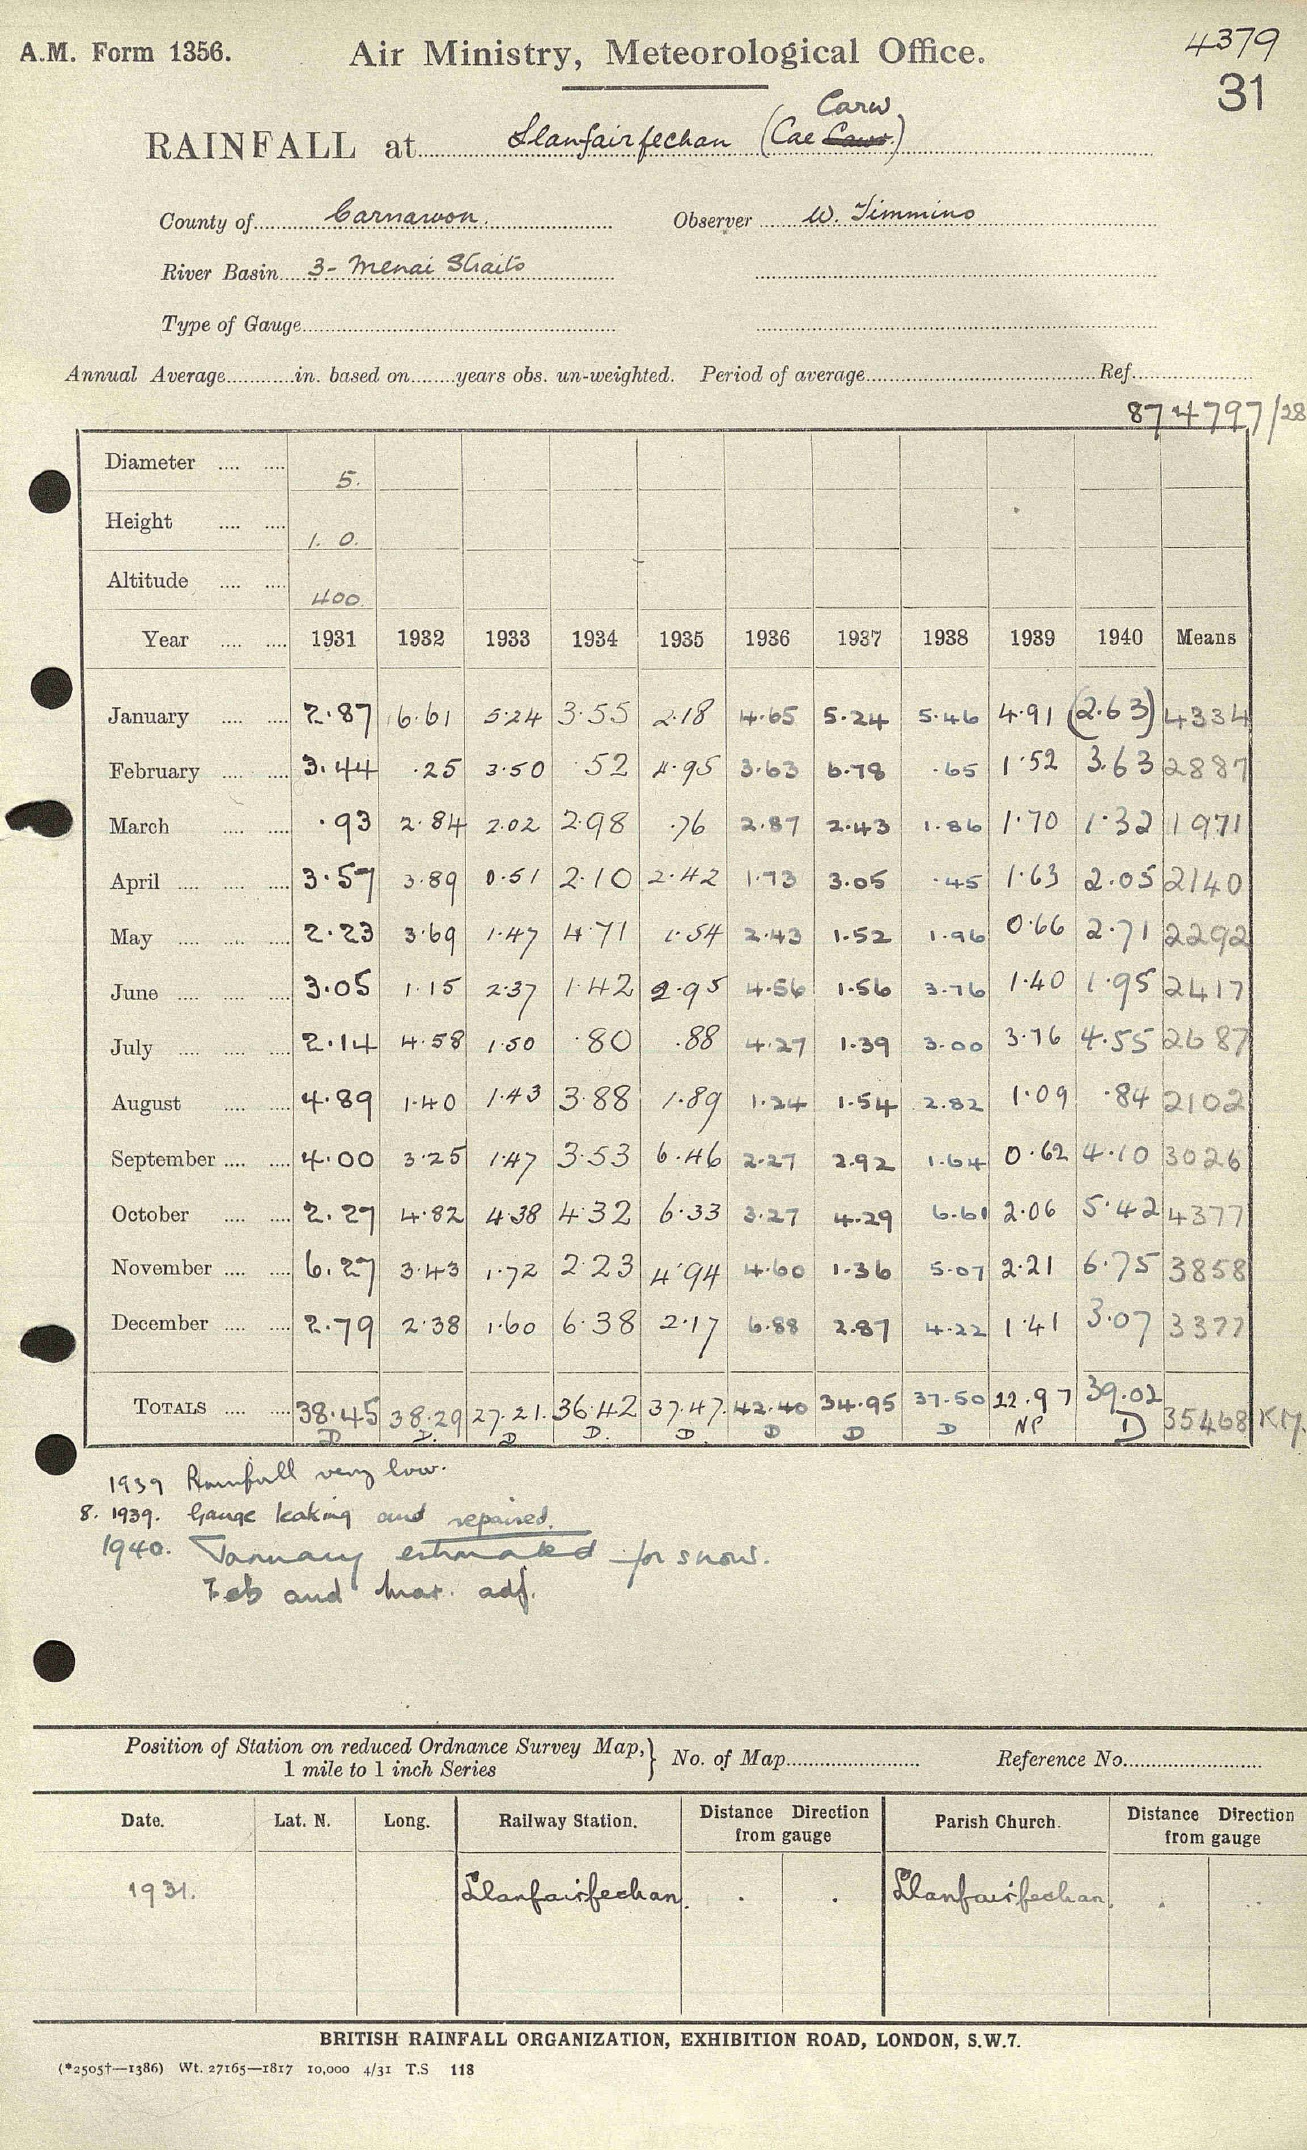 A.M. Form 1356.
Air Ministry, Meteorological Office.
4379
31
Carw
RAINFALL at Llanfairfechan (Cae Cawr.)
County of Carnarvon. Observer W. Timmins
River Basin 3- Menai Straits
Type of Gauge
Annual Average in. based on years obs. un-weighted. Period of average Ref.
874797/28
Diameter 5.
Height 1. 0.
Altitude 400
Year 1931 1932 1933 1934 1935 1936 1937 1938 1939 1940 Means
January 2.87 6.61 5.24 3.55 2.18 4.65 5.24 5.46 4.91 (2.63) 4334
February 3.44 .25 3.50 .52 4.95 3.63 6.78 .65 1.52 3.63 2887
March .93 2.84 2.02 2.98 .76 2.87 2.43 1.86 1.70 1.32 1971
April 3.57 3.89 0.51 2.10 2.42 1.73 3.05 .45 1.63 2.05 2140
May 2.23 3.69 1.47 4.71 1.54 2.43 1.52 1.96 0.66 2.71 2292
June 3.05 1.15 2.37 1.42 2.95 4.56 1.56 3.76 1.40 1.95 2417
July 2.14 4.58 1.50 .80 .88 4.27 1.39 3.00 3.76 4.55 2687
August 4.89 1.40 1.43 3.88 1.89 1.24 1.54 2.82 1.09 .84 2102
September 4.00 3.25 1.47 3.53 6.46 2.27 2.92 1.64 0.62 4.10 3026
October 2.27 4.82 4.38 4.32 6.33 3.27 4.29 6.61 2.06 5.42 4377
November 6.27 3.43 1.72 2.23 4.94 4.60 1.36 5.07 2.21 6.75 3858
December 2.79 2.38 1.60 6.38 2.17 6.88 2.87 4.22 1.41 3.07 3377
TOTALS 38.45 38.29 27.21. 36.42 37.47. 42.40 34.95 37.50 22.97 39.02 35468 K.M.
D D. D D. D. D D D NP D
1939 Rainfall very low.
8. 1939. Gauge leaking and repaired.
1940. January estimated for snow.
Feb and Mar. adj.
Position of Station on reduced Ordnance Survey Map, } No. of Map Reference No.
1 mile to 1 inch Series
Date. Lat. N. Long. Railway Station. Distance Direction from gauge Parish Church. Distance Direction from gauge
1931. Llanfairfechan. Llanfairfechan.
BRITISH RAINFALL ORGANIZATION, EXHIBITION ROAD, LONDON, S.W.7.
(*2505†—1386) Wt. 27165—1817 10,000 4/31 T.S 118